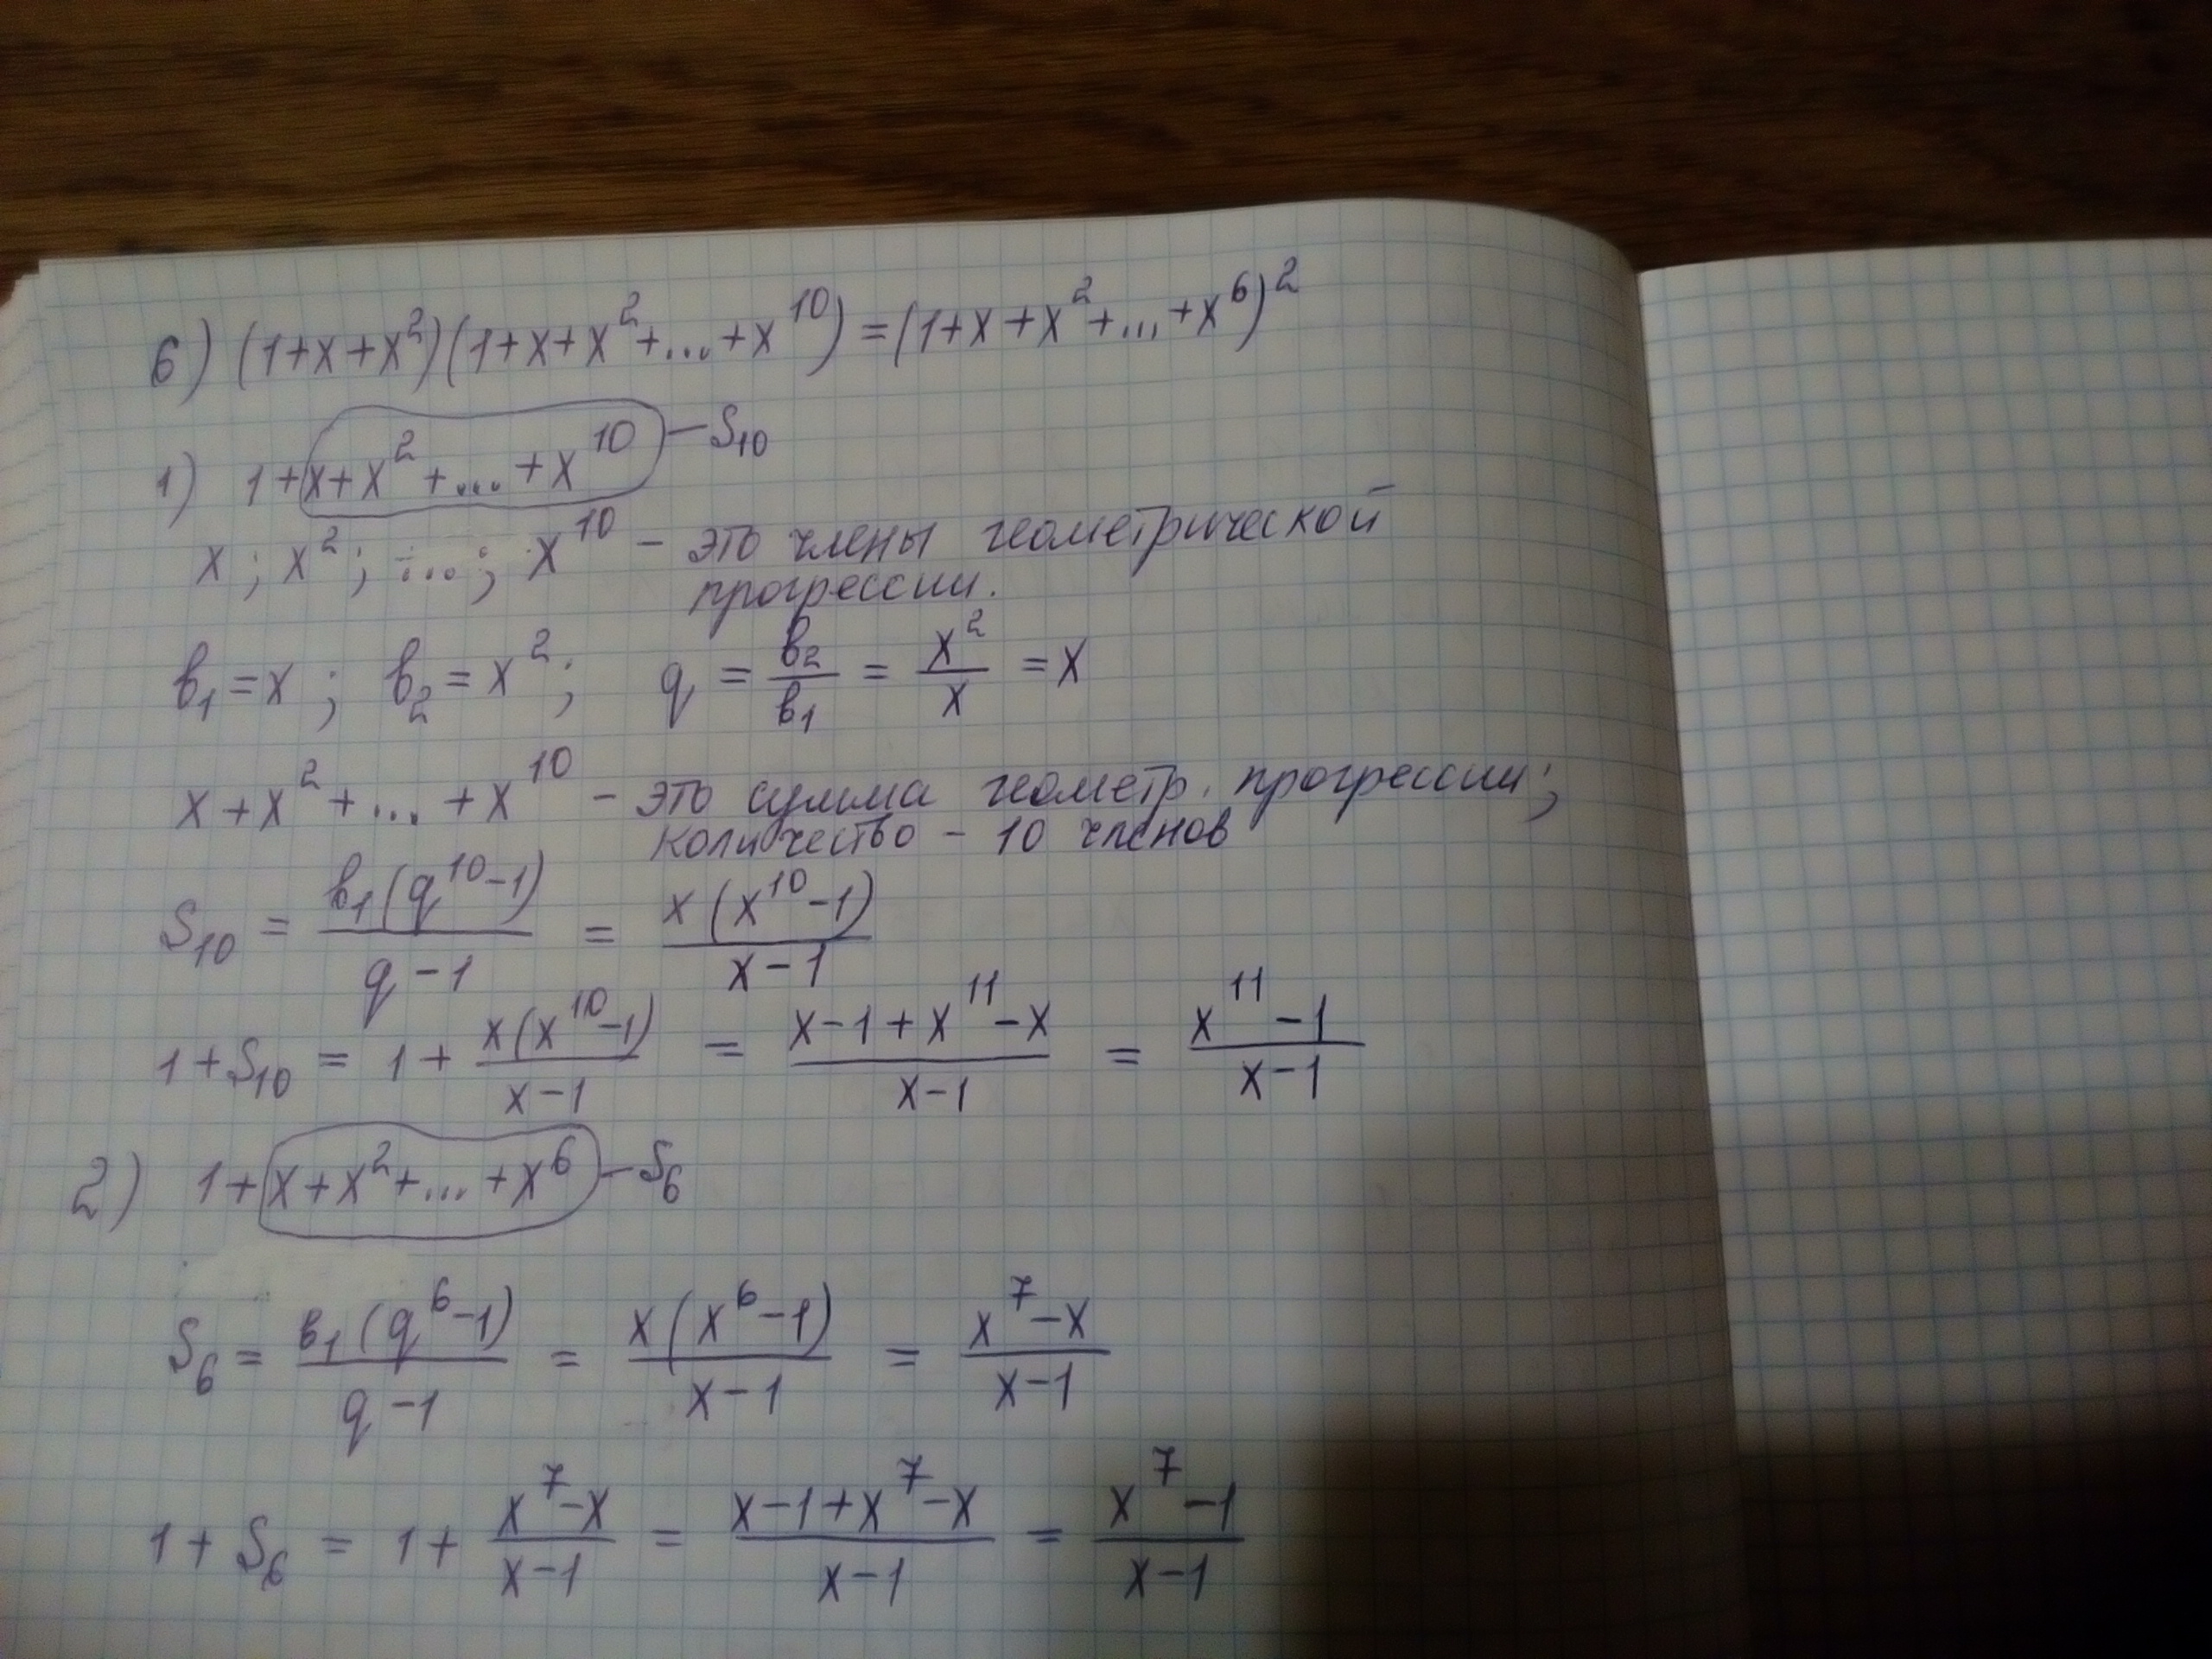 6) (1+x+x²)(1+x+x²+...+x¹⁰) = (1+x+x²+...+x⁶)²
1) 1+x+x²+...+x¹⁰ – S₁₀
x; x²; ...; x¹⁰ – это члены геометрической
прогрессии.
в₁=x; в₂=x²; q = в₂/в₁ = x²/x = x
x+x²+...+x¹⁰ – это сумма геометр. прогрессии;
количество – 10 членов
S₁₀ = в₁(q¹⁰-1)/(q-1) = x(x¹⁰-1)/(x-1)
1+S₁₀ = 1+ x(x¹⁰-1)/(x-1) = (x-1+x¹¹-x)/(x-1) = (x¹¹-1)/(x-1)
2) 1+x+x²+...+x⁶ – S₆
S₆ = в₁(q⁶-1)/(q-1) = x(x⁶-1)/(x-1) = (x⁷-x)/(x-1)
1+S₆ = 1+ (x⁷-x)/(x-1) = (x-1+x⁷-x)/(x-1) = (x⁷-1)/(x-1)